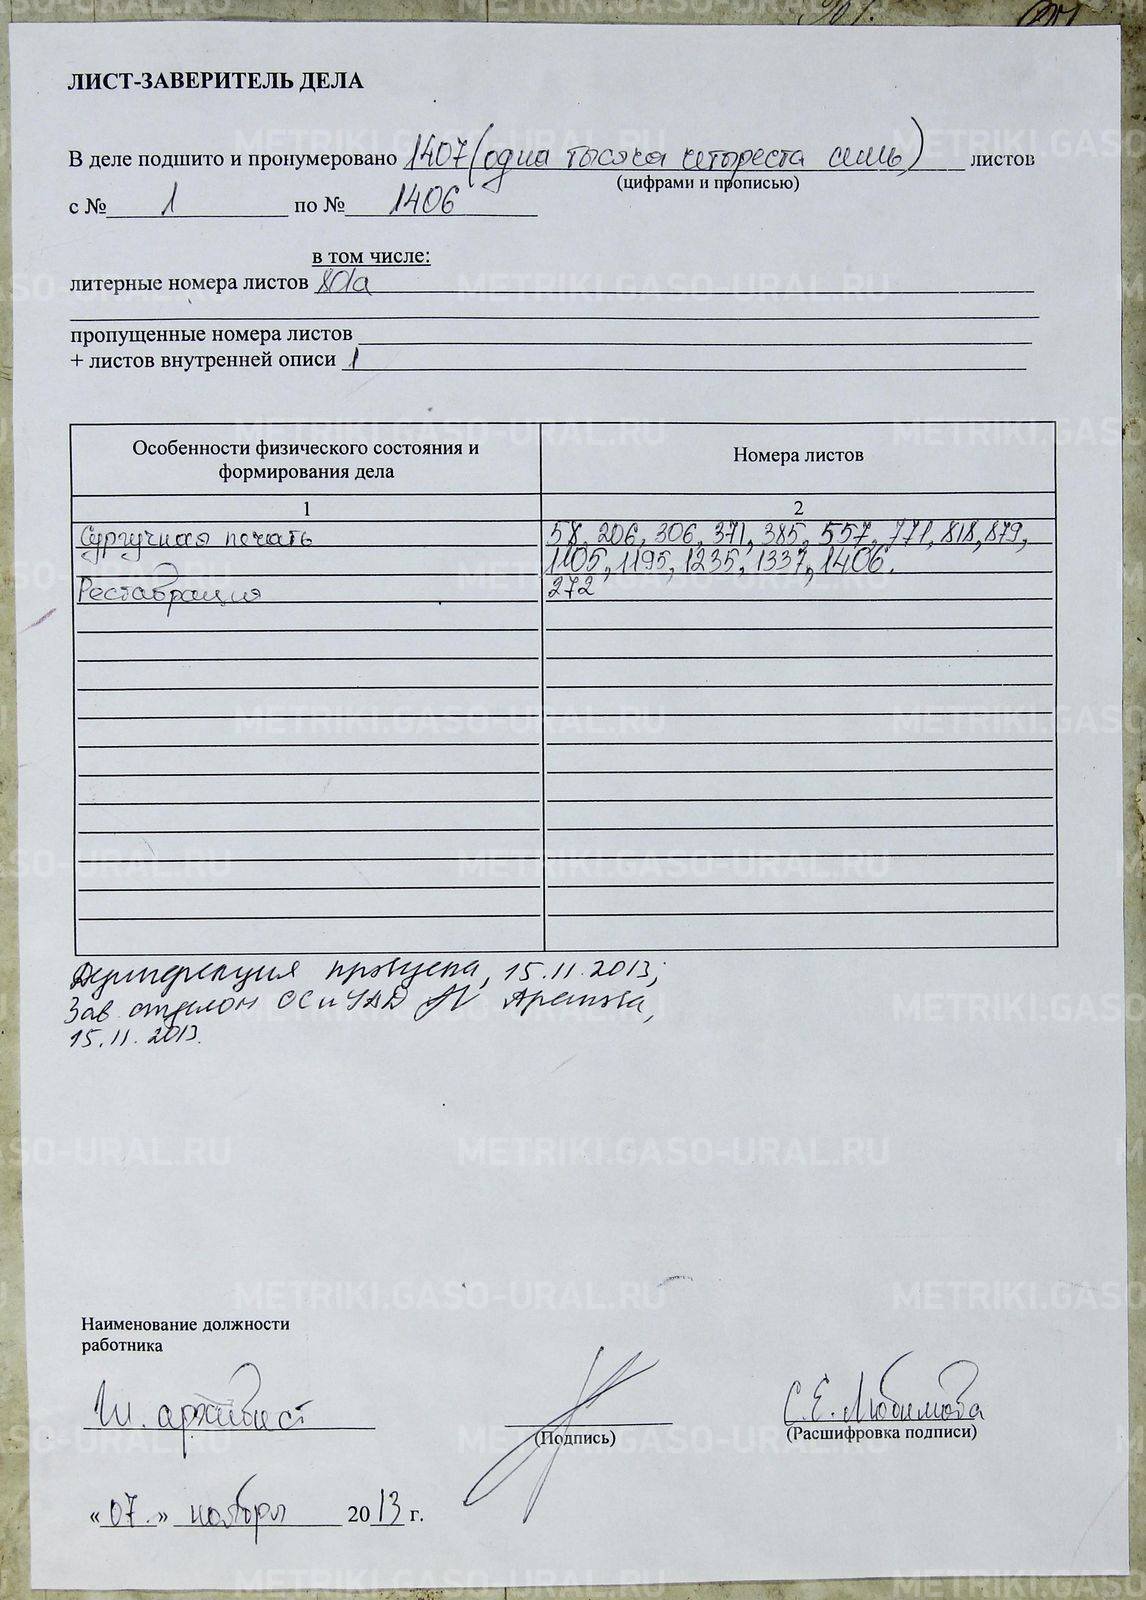 ЛИСТ-ЗАВЕРИТЕЛЬ ДЕЛА
В деле подшито и пронумеровано 1407 (одна тысяча четыреста семь) листов
(цифрами и прописью)
с № 1 по № 1406
в том числе:
литерные номера листов 801а
пропущенные номера листов
+ листов внутренней описи 1
Особенности физического состояния и формирования дела
Номера листов
1 2
Сургучная печать 58, 206, 306, 371, 385, 557, 771, 818, 879,
1105, 1195, 1235, 1337, 1406.
Реставрация 272
Дезинфекция проведена, 15.11.2013;
Зав. отделом ОСиУАД
15.11.2013.
Наименование должности
работника
архивист С.Е. Любимова
(Подпись) (Расшифровка подписи)
«07.» ноября 2013 г.
METRIKI.GASO-URAL.RU